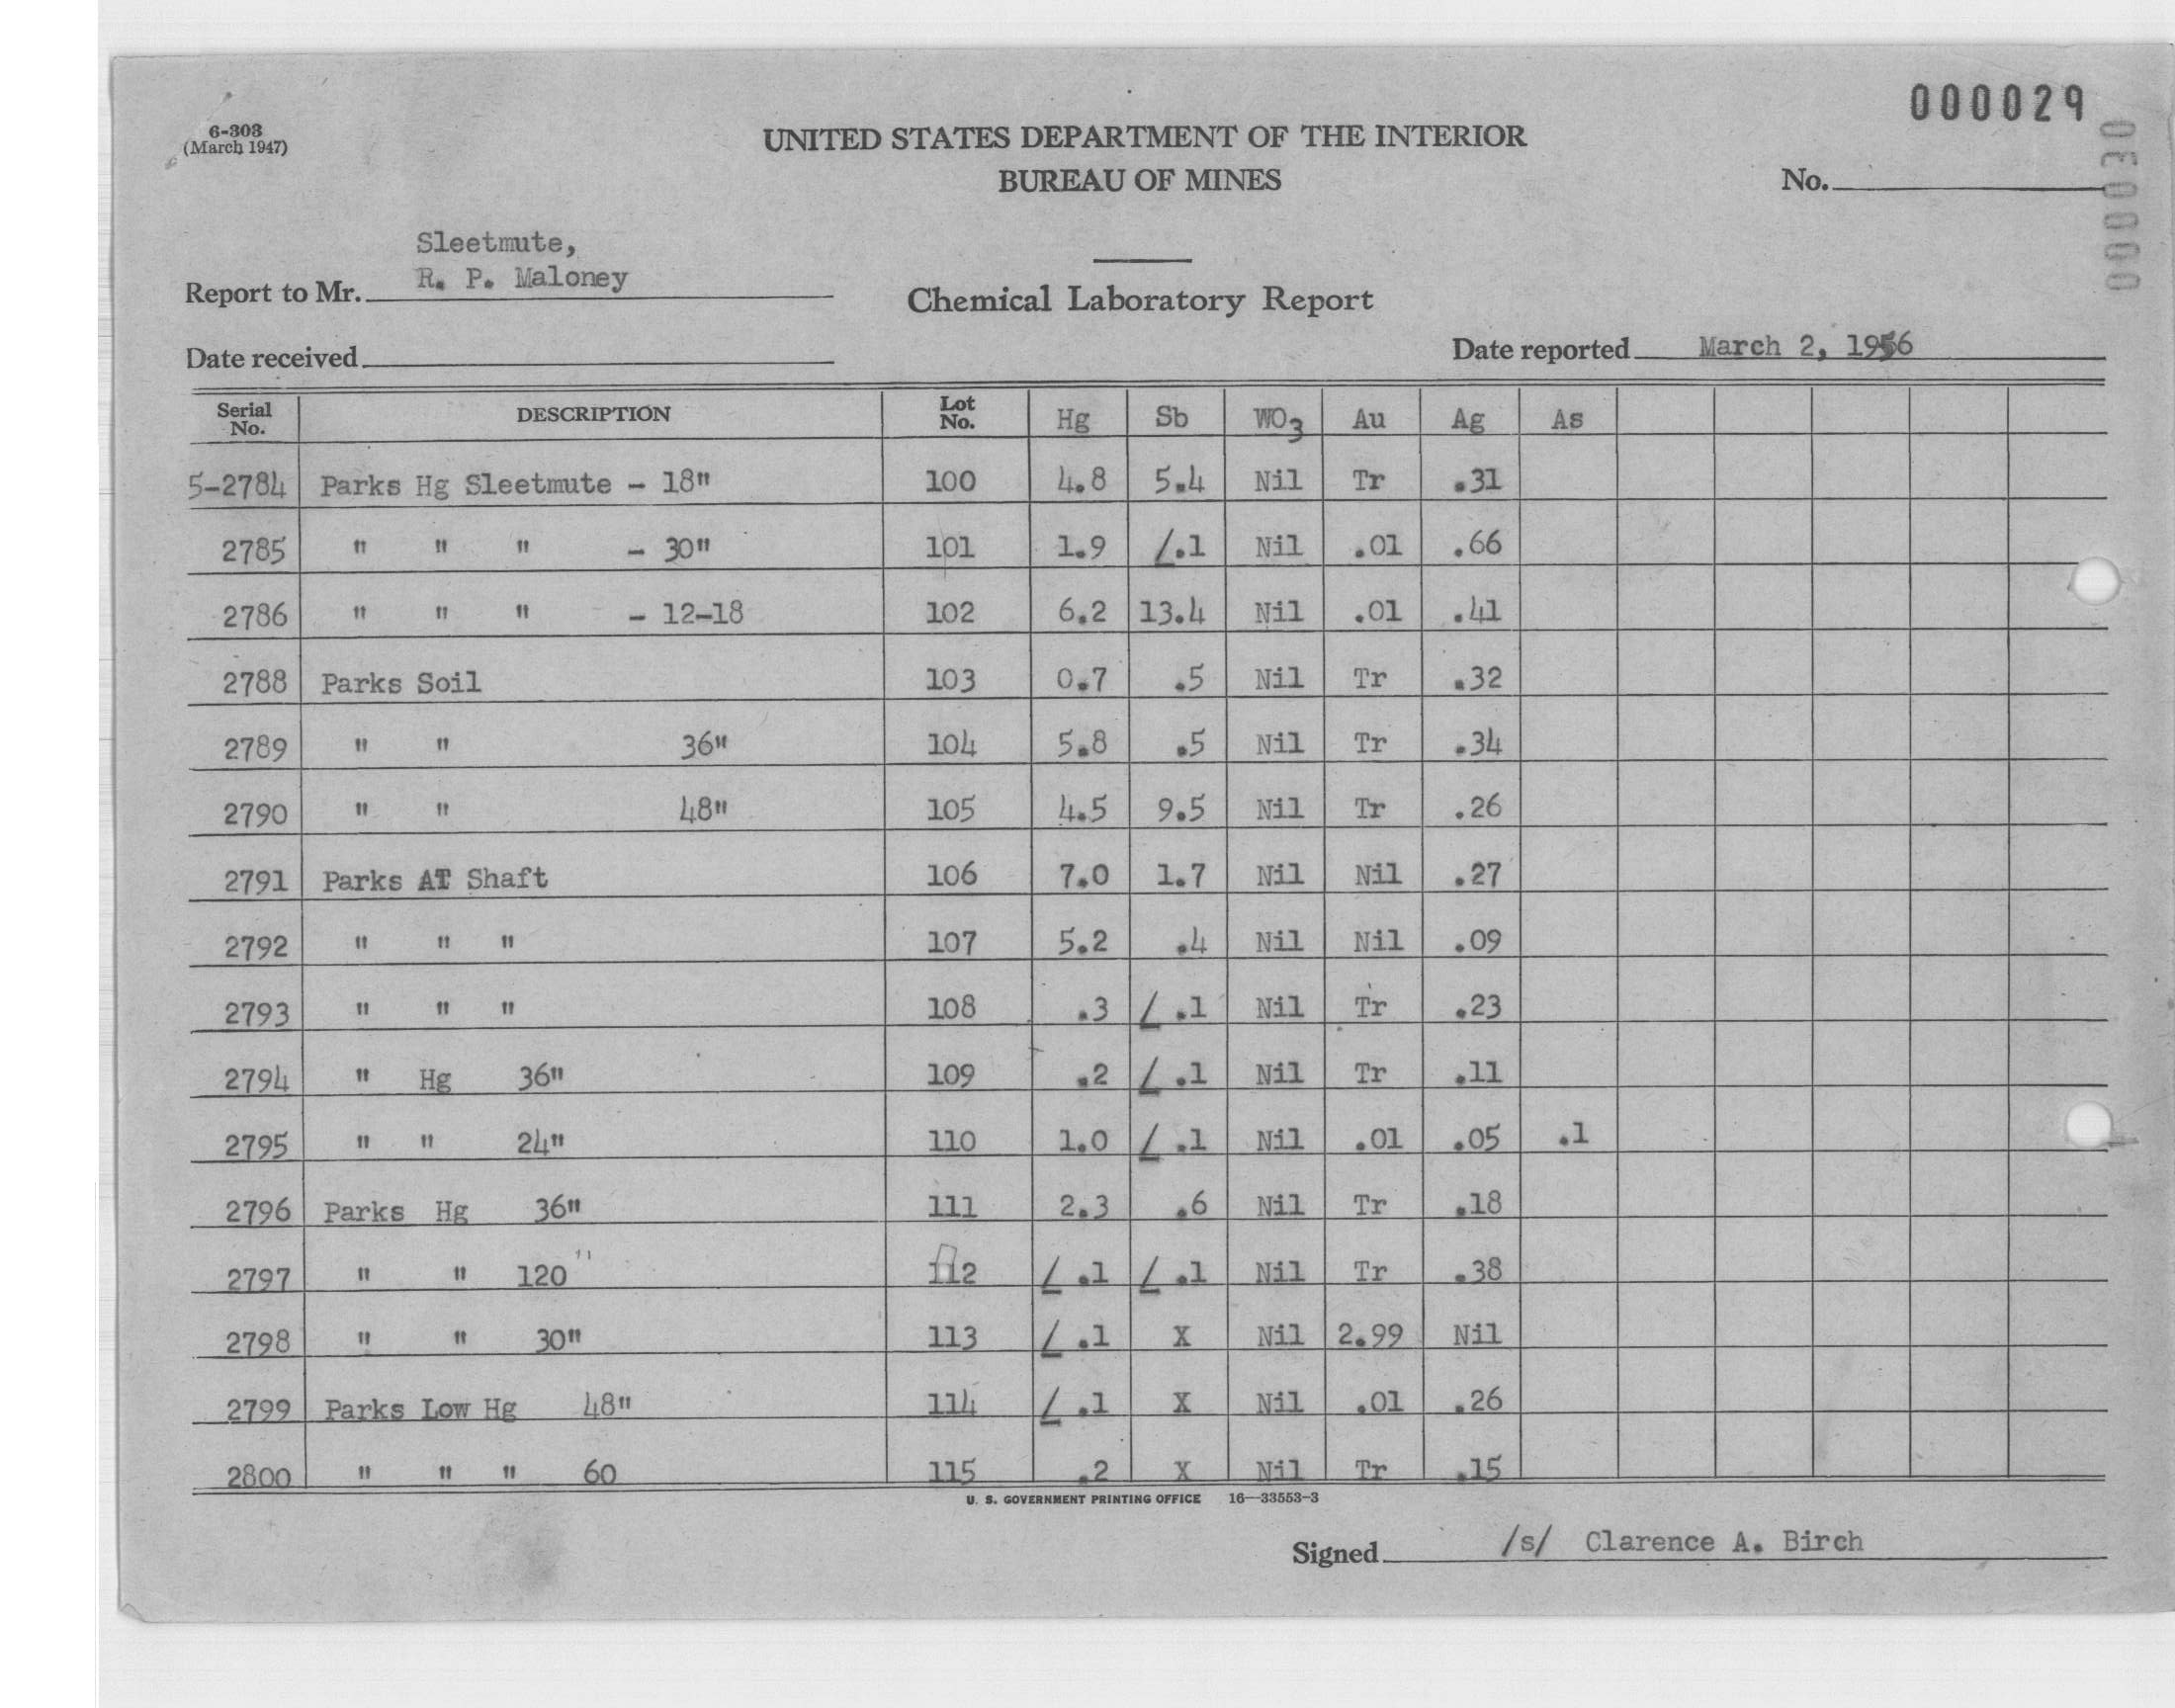 000029
6-303
(March 1947)
UNITED STATES DEPARTMENT OF THE INTERIOR
BUREAU OF MINES
No.
000030
Sleetmute,
Report to Mr. R. P. Maloney
Chemical Laboratory Report
Date received
Date reported March 2, 1956
Serial No. DESCRIPTION Lot No. Hg Sb WO3 Au Ag As
5-2784 Parks Hg Sleetmute - 18" 100 4.8 5.4 Nil Tr .31
2785 " " " - 30" 101 1.9 ∠.1 Nil .01 .66
2786 " " " - 12-18 102 6.2 13.4 Nil .01 .41
2788 Parks Soil 103 0.7 .5 Nil Tr .32
2789 " " 36" 104 5.8 .5 Nil Tr .34
2790 " " 48" 105 4.5 9.5 Nil Tr .26
2791 Parks AT Shaft 106 7.0 1.7 Nil Nil .27
2792 " " " 107 5.2 .4 Nil Nil .09
2793 " " " 108 .3 ∠ .1 Nil Tr .23
2794 " Hg 36" 109 .2 ∠ .1 Nil Tr .11
2795 " " 24" 110 1.0 ∠ .1 Nil .01 .05 .1
2796 Parks Hg 36" 111 2.3 .6 Nil Tr .18
2797 " " 120" 112 ∠ .1 ∠ .1 Nil Tr .38
2798 " " 30" 113 ∠ .1 X Nil 2.99 Nil
2799 Parks Low Hg 48" 114 ∠ .1 X Nil .01 .26
2800 " " " 60 115 .2 X Nil Tr .15
U. S. GOVERNMENT PRINTING OFFICE 16—33553-3
Signed /s/ Clarence A. Birch